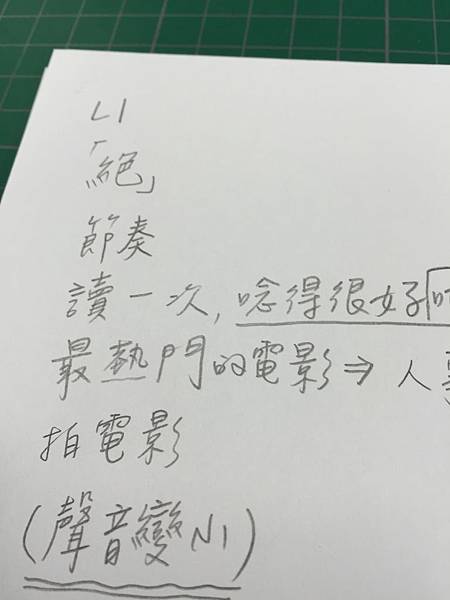 L1
「絕」
節奏
讀一次,唸得很好
最熱門的電影⇒人
拍電影
(聲音變小)